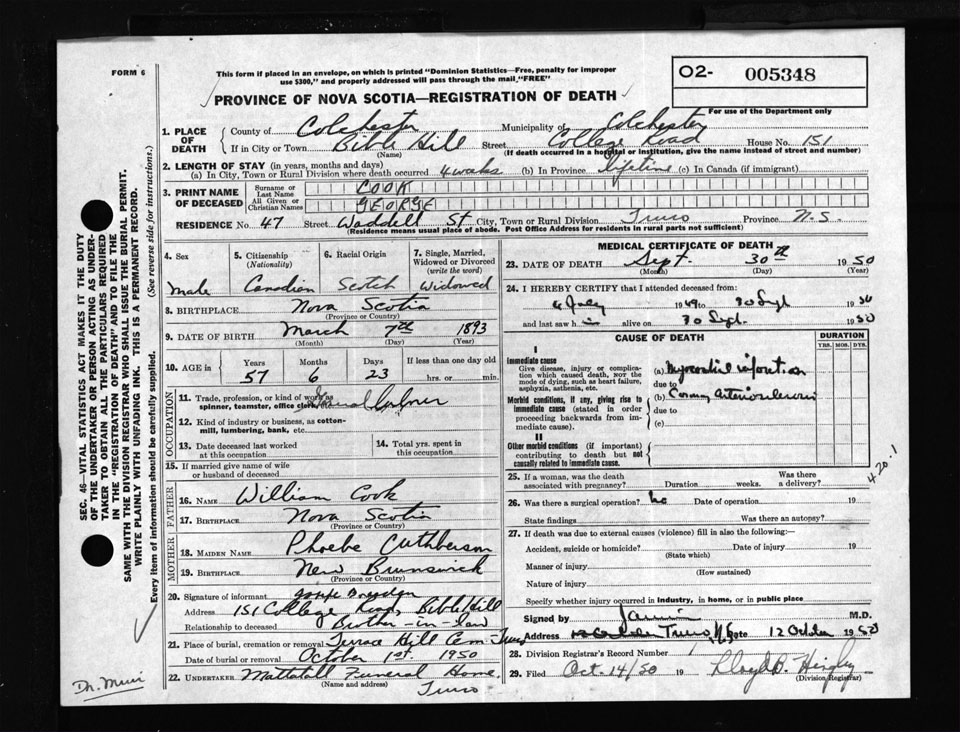 FORM 6
This form if placed in an envelope, on which is printed "Dominion Statistics—Free, penalty for improper
use $300," and properly addressed will pass through the mail "FREE"
O2- 005348
For use of the Department only
PROVINCE OF NOVA SCOTIA—REGISTRATION OF DEATH
SEC. 46—VITAL STATISTICS ACT MAKES IT THE DUTY
OF THE UNDERTAKER OR PERSON ACTING AS UNDER-
TAKER TO OBTAIN ALL THE PARTICULARS REQUIRED
IN THE "REGISTRATION OF DEATH" AND TO FILE THE
SAME WITH THE DIVISION REGISTRAR WHO SHALL ISSUE THE BURIAL PERMIT.
WRITE PLAINLY WITH UNFADING INK. THIS IS A PERMANENT RECORD.
Every item of information should be carefully supplied. (See reverse side for instructions.)
1. PLACE OF DEATH
County of Colchester Municipality of Colchester
If in City or Town Bible Hill Street College Road House No. 151
(Name) (If death occurred in a hospital or institution, give the name instead of street and number)
2. LENGTH OF STAY (in years, months and days)
(a) In City, Town or Rural Division where death occurred 4 weeks (b) In Province lifetime (c) In Canada (if immigrant)
3. PRINT NAME OF DECEASED
Surname or Last Name COOK
All Given or Christian Names GEORGE
RESIDENCE No. 47 Street Waddell St City, Town or Rural Division Truro Province N.S.
(Residence means usual place of abode. Post Office Address for residents in rural parts not sufficient)
4. Sex 5. Citizenship (Nationality) 6. Racial Origin 7. Single, Married, Widowed or Divorced (write the word)
Male Canadian Scotch Widowed
8. BIRTHPLACE Nova Scotia
(Province or Country)
9. DATE OF BIRTH March 7th 1893
(Month) (Day) (Year)
10. AGE in Years Months Days If less than one day old
57 6 23 hrs. or min.
OCCUPATION
11. Trade, profession, or kind of work as
spinner, teamster, office clerk
12. Kind of industry or business, as cotton-
mill, lumbering, bank, etc.
13. Date deceased last worked
at this occupation
14. Total yrs. spent in
this occupation
15. If married give name of wife
or husband of deceased
FATHER
16. NAME William Cook
17. BIRTHPLACE Nova Scotia
(Province or Country)
MOTHER
18. MAIDEN NAME Phoebe Cuthberson
19. BIRTHPLACE New Brunswick
(Province or Country)
20. Signature of informant
Address 151 College Road, Bible Hill
Relationship to deceased Brother-in-law
21. Place of burial, cremation or removal Terrace Hill Cem. Truro
Date of burial or removal October 1st. 1950
22. UNDERTAKER Mattatall Funeral Home,
(Name and address) Truro
MEDICAL CERTIFICATE OF DEATH
23. DATE OF DEATH Sept. 30th 1950
(Month) (Day) (Year)
24. I HEREBY CERTIFY that I attended deceased from:
4 July 1949 to 30 Sept 1950
and last saw h i alive on 30 Sept. 1950
CAUSE OF DEATH DURATION
YRS. MOS. DYS.
I
Immediate cause
Give disease, injury or complica-
tion which caused death, NOT the
mode of dying, such as heart failure,
asphyxia, asthenia, etc.
(a) Myocardial infarction
due to
Morbid conditions, if any, giving rise to
immediate cause (stated in order
proceeding backwards from im-
mediate cause).
(b) Coronary Arteriosclerosis
due to
(c)
II
Other morbid conditions (if important)
contributing to death but not
causally related to immediate cause.
4.20.1
25. If a woman, was the death
associated with pregnancy? Duration weeks. Was there a delivery?
26. Was there a surgical operation? no Date of operation 19
State findings Was there an autopsy?
27. If death was due to external causes (violence) fill in also the following:—
Accident, suicide or homicide? Date of injury 19
(State which)
Manner of injury
(How sustained)
Nature of injury
Specify whether injury occurred in industry, in home, or in public place
Signed by M.D.
Address Truro, N.S. Date 12 October 1950
28. Division Registrar's Record Number
29. Filed Oct. 14/50 19 Lloyd
(Division Registrar)
Dr. Muir